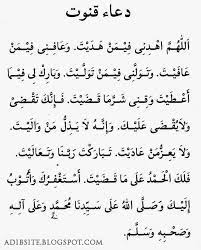 دعاء قنوت
اَللّٰهُمَّ اهْدِنِى فِيْمَنْ هَدَيْتَ. وَعَافِنِى فِيْمَنْ
عَافَيْتَ. وَتَوَلَّنِى فِيْمَنْ تَوَلَّيْتَ. وَبَارِكْ لِى فِيْمَا
أَعْطَيْتَ. وَقِنِى شَرَّمَا قَضَيْتَ. فَإِنَّكَ تَقْضِىْ
وَلَايُقْضَى عَلَيْكَ. وَإِنَّهُ لَا يَذِلُّ مَنْ وَالَيْتَ.
وَلَا يَعِزُّمَنْ عَادَيْتَ. تَبَارَكْتَ رَبَّنَا وَتَعَالَيْتَ.
فَلَكَ الْحَمْدُ عَلَى مَا قَضَيْتَ. أَسْتَغْفِرُكَ وَأَتُوْبُ
إِلَيْكَ وَصَلَّى اللهُ عَلَى سَيِّدِنَا مُحَمَّدٍ وَعَلَى آلِهِ
وَصَحْبِهِ وَسَلَّمَ.
ADIBSITE.BLOGSPOT.COM